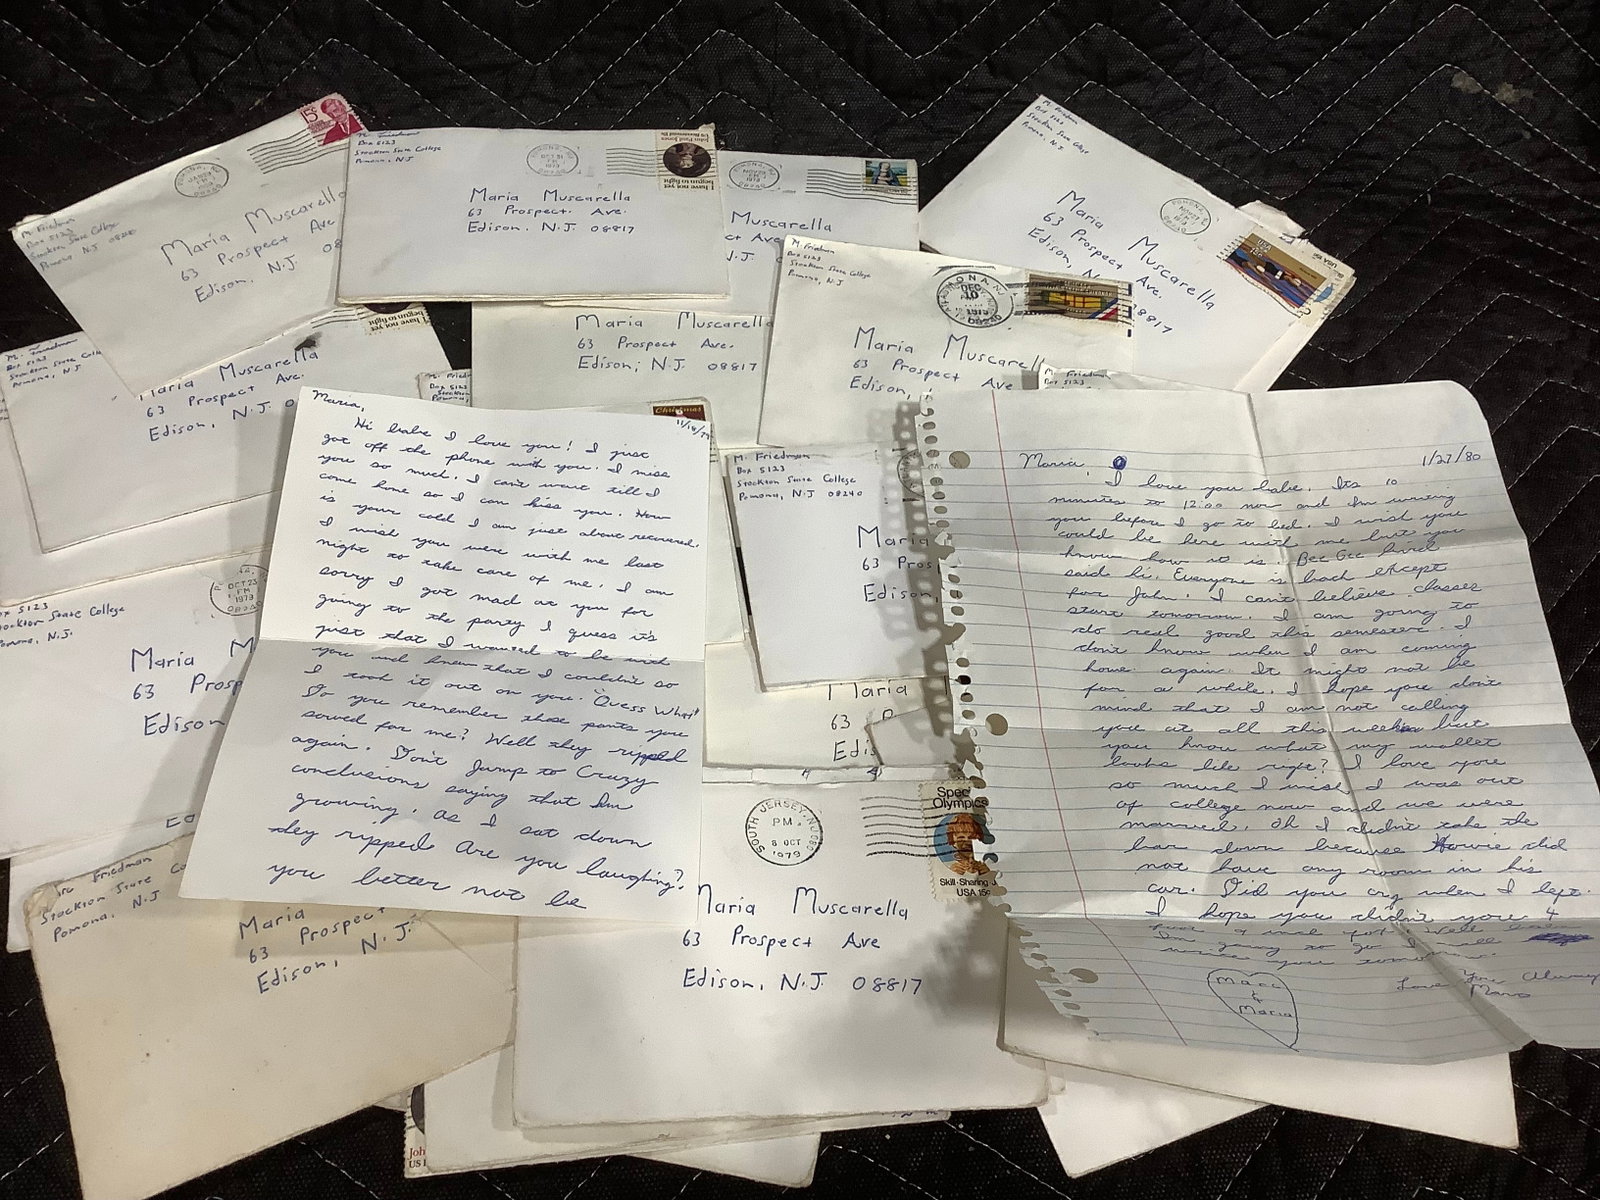 15¢
M. Friedman
Box 5123
Stockton State College
Pomona, N.J. 08240
Maria Muscarella
63 Prospect Ave
Edison, N.J. 08
M. Friedman
Box 5123
Stockton State College
Pomona, N.J.
OCT 31
PM
1979
John Paul Jones
US Bicentennial 15c
I have not yet
begun to fight
Maria Muscarella
63 Prospect Ave.
Edison, N.J. 08817
Muscarella
ct Ave
N.J.
M. Friedman
Box 5123
Stockton State College
Pomona, N.J.
Maria Muscarella
63 Prospect Ave.
Edison, N.
08817
USA 15c
M. Friedman
Box 5123
Stockton State College
Pomona, N.J.
DEC
10
1979
Maria Muscarell
63 Prospect Ave
Edison,
Maria Muscarella
63 Prospect Ave.
Edison, N.J. 08817
I have not yet
begun to fight
M. Friedman
Box 5123
Stockton State Coll
Pomona, N.J
Maria Muscarella
63 Prospect Ave.
Edison, N.J. 0
M. Fried
Box 5123
M. Friedman
Box 5123
Christmas
Maria,
Hi babe I love you! I just
got off the phone with you. I miss
you so much. I can't wait till I
come home so I can kiss you. How
is your cold I am just about recovered.
I wish you were with me last
night to take care of me. I am
sorry I got mad at you for
going to the party I guess it's
just that I wanted to be with
you and knew that I couldn't so
I took it out on you. "Quess What"
Do you remember those pants you
sowed for me? Well they ripped
again. Don't Jump to Crazy
conclusions saying that Im
growing. As I sat down
they ripped. Are you laughing?
you better not be
M. Friedman
Box 5123
Stockton State College
Pomona, N.J. 08240
Maria
63 Pros
Edison
Maria
63 P
Edis
1/27/80
Maria,
I love you babe. Its 10
minutes to 12:00 now and Im writing
you before I go to bed. I wish you
could be here with me but you
know how it is. Bee Gee
said hi. Everyone is back except
for John. I can't believe classes
start tomorrow. I am going to
do real good this semester. I
don't know when I am coming
home again. It might not be
for a while. I hope you don't
mind that I am not calling
you at all this week but
you know what my wallet
looks like right? I love you
so much I wish I was out
of college now and we were
married. Oh I didn't take the
bar down because Howie did
not have any room in his
car. Did you cry when I left.
I hope you didn't
Im going to go I will
write you tomorrow.
Love You Always
Marc
Marc
&
Maria
Box 5123
Stockton State College
Pomona, N.J.
OCT 23
PM
1979
Maria M
63 Prosp
Edison
SOUTH JERSEY, NJ 080
PM
8 OCT
1979
Special
Olympics
Skill·Sharing
USA 15c
Maria Muscarella
63 Prospect Ave
Edison, N.J. 08817
Friedman
Stockton State Co
Pomona, N.J
Maria
63 Prospect
Edison, N.J.
Joh
US